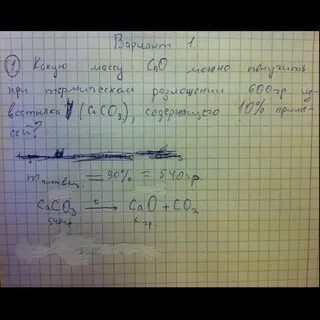 Вариант 1.
① Какую массу CaO можно получить
при термическом разложении 600гр из
вестняка (CaCO₃), содержащего 10% приме-
сей?
= 90% = 540гр
CaCO₃ →ᵗ CaO + CO₂
540гр x гр.